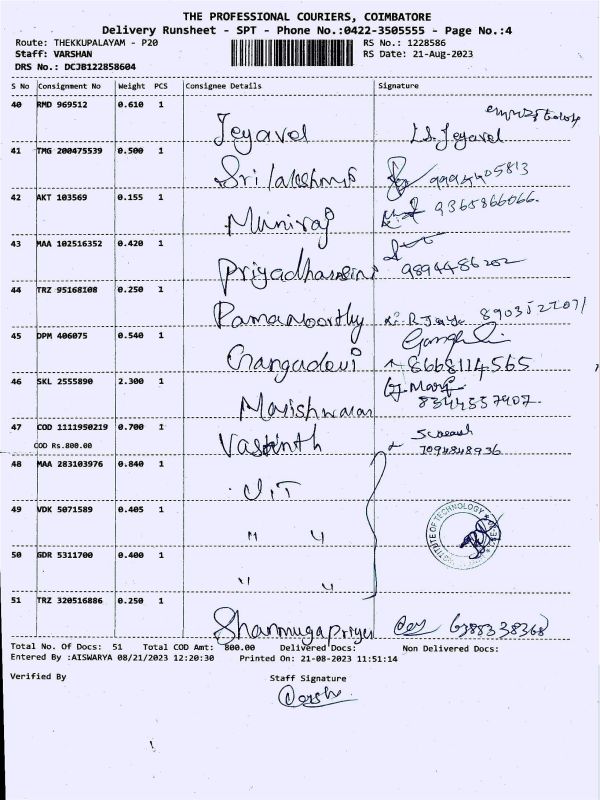 THE PROFESSIONAL COURIERS, COIMBATORE
Delivery Runsheet - SPT - Phone No.:0422-3505555 - Page No.:4
Route: THEKKUPALAYAM - P20 RS No.: 1228586
Staff: VARSHAN RS Date: 21-Aug-2023
DRS No.: DCJB122858604
S No Consignment No Weight PCS Consignee Details Signature
40 RMD 969512 0.610 1
Jeyavel L.S. Jeyavel
41 TMG 200475539 0.500 1
Srilakshmi 9994405813
42 AKT 103569 0.155 1
Muniraj 9365866066.
43 MAA 102516352 0.420 1
Priyadharsini 9894486202
44 TRZ 95168108 0.250 1
Ramamoorthy
45 DPM 406075 0.540 1
Gangadevi 8668114565
46 SKL 2555890 2.300 1
Marishwaran 8344557907.
47 COD 1111950219 0.700 1
COD Rs.800.00
Vasanth 7094848936
48 MAA 283103976 0.840 1
UIT
49 VDK 5071589 0.405 1
" "
50 GDR 5311700 0.400 1
" "
51 TRZ 320516886 0.250 1
Shanmugapriya
INSTITUTE OF TECHNOLOGY
Total No. Of Docs: 51 Total COD Amt: 800.00 Delivered Docs: Non Delivered Docs:
Entered By :AISWARYA 08/21/2023 12:20:30 Printed On: 21-08-2023 11:51:14
Verified By Staff Signature